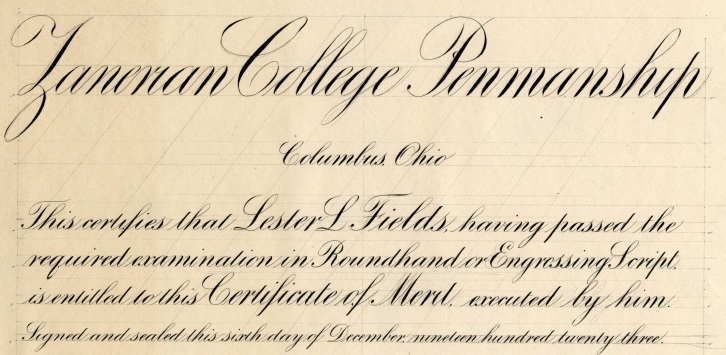 Zanerian College Penmanship
Columbus, Ohio
This certifies that Lester L Fields, having passed the
required examination in Roundhand or Engrossing Script,
is entitled to this Certificate of Merit, executed by him.
Signed and sealed this sixth day of December, nineteen hundred twenty three.